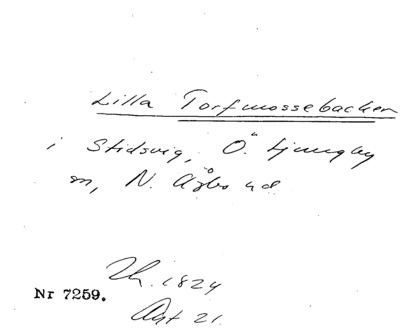 Lilla Torfmossebacken
i Stidsvig, Ö. Ljungby
sn, N. Åsbo hd
1824
Nr 7259.
Akt 21.